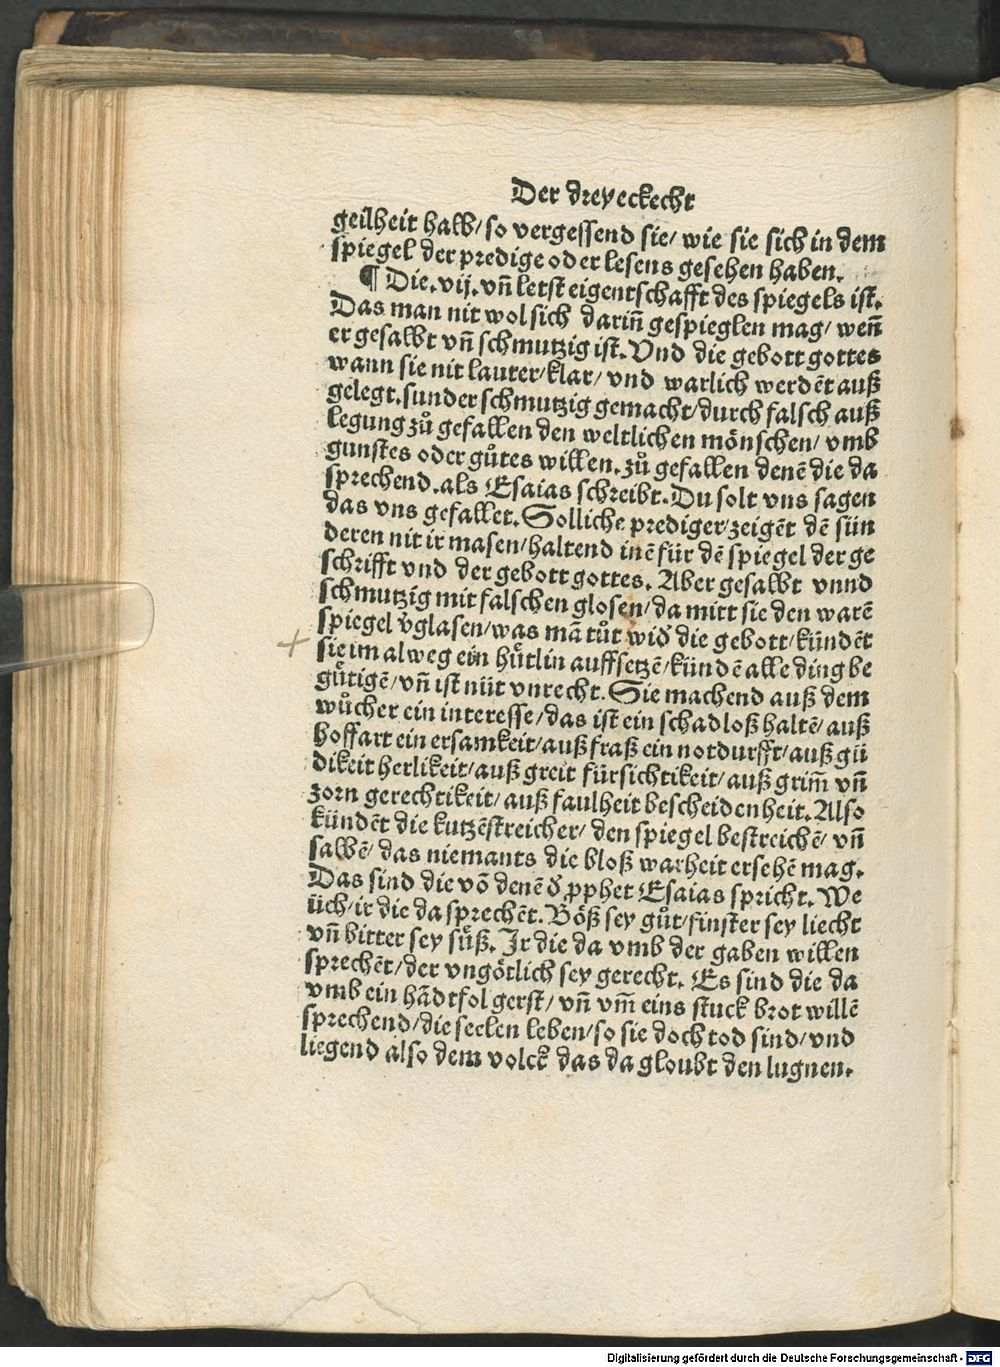 Der dreyeckecht
geilheit halb/ so vergessend sie/ wie sie sich in dem
spiegel der predige oder lesens gesehen haben.
¶ Die.vij.vñ letst eigentschafft des spiegels ist.
Das man nit wol sich darin̄ gespieglen mag/ wen̄
er gesalbt vñ schmutzig ist. Vnd die gebott gottes
wann sie nit lauter/klar/ vnd warlich werdēt auß
gelegt.sunder schmutzig gemacht/durch falsch auß
legung zů gefallen den weltlichen mönschen/ vmb
gunstes oder gůtes willen.zů gefallen denē die da
sprechend.als Esaias schreibt.Du solt vns sagen
das vns gefallet.Solliche prediger/zeigēt dē sün
deren nit ir masen/haltend inē für dē spiegel der ge
schrifft vnd der gebott gottes. Aber gesalbt vnnd
schmutzig mit falschen glosen/da mitt sie den warē
spiegel v̄glasen/was mā tůt wid̄ die gebott/kündēt
sie im alweg ein hůtlin auffsetzē/kündē alle ding be
gütigē/vñ ist nüt vnrecht.Sie machend auß dem
wůcher ein interesse/das ist ein schadloß haltē/auß
hoffart ein ersamkeit/auß fraß ein notdurfft/auß gü
dikeit herlikeit/auß greit fürsichtikeit/auß grim̄ vñ
zorn gerechtikeit/auß faulheit bescheidenheit.Also
kündēt die kutzēstreicher/ den spiegel bestreichē/ vñ
salbē/ das niemants die bloß warheit ersehē mag.
Das sind die vō denē d̄ ꝓphet Esaias spricht.We
üch/ir die da sprechēt.Böß sey gůt/finster sey liecht
vñ bitter sey süß. Ir die da vmb der gaben willen
sprechēt/der vngötlich sey gerecht. Es sind die da
vmb ein hādtfol gerst/ vñ vm̄ eins stuck brot willē
sprechend/die seelen leben/so sie doch tod sind/vnd
liegend also dem volck das da gloubt den lugnen.
Digitalisierung gefördert durch die Deutsche Forschungsgemeinschaft - DFG